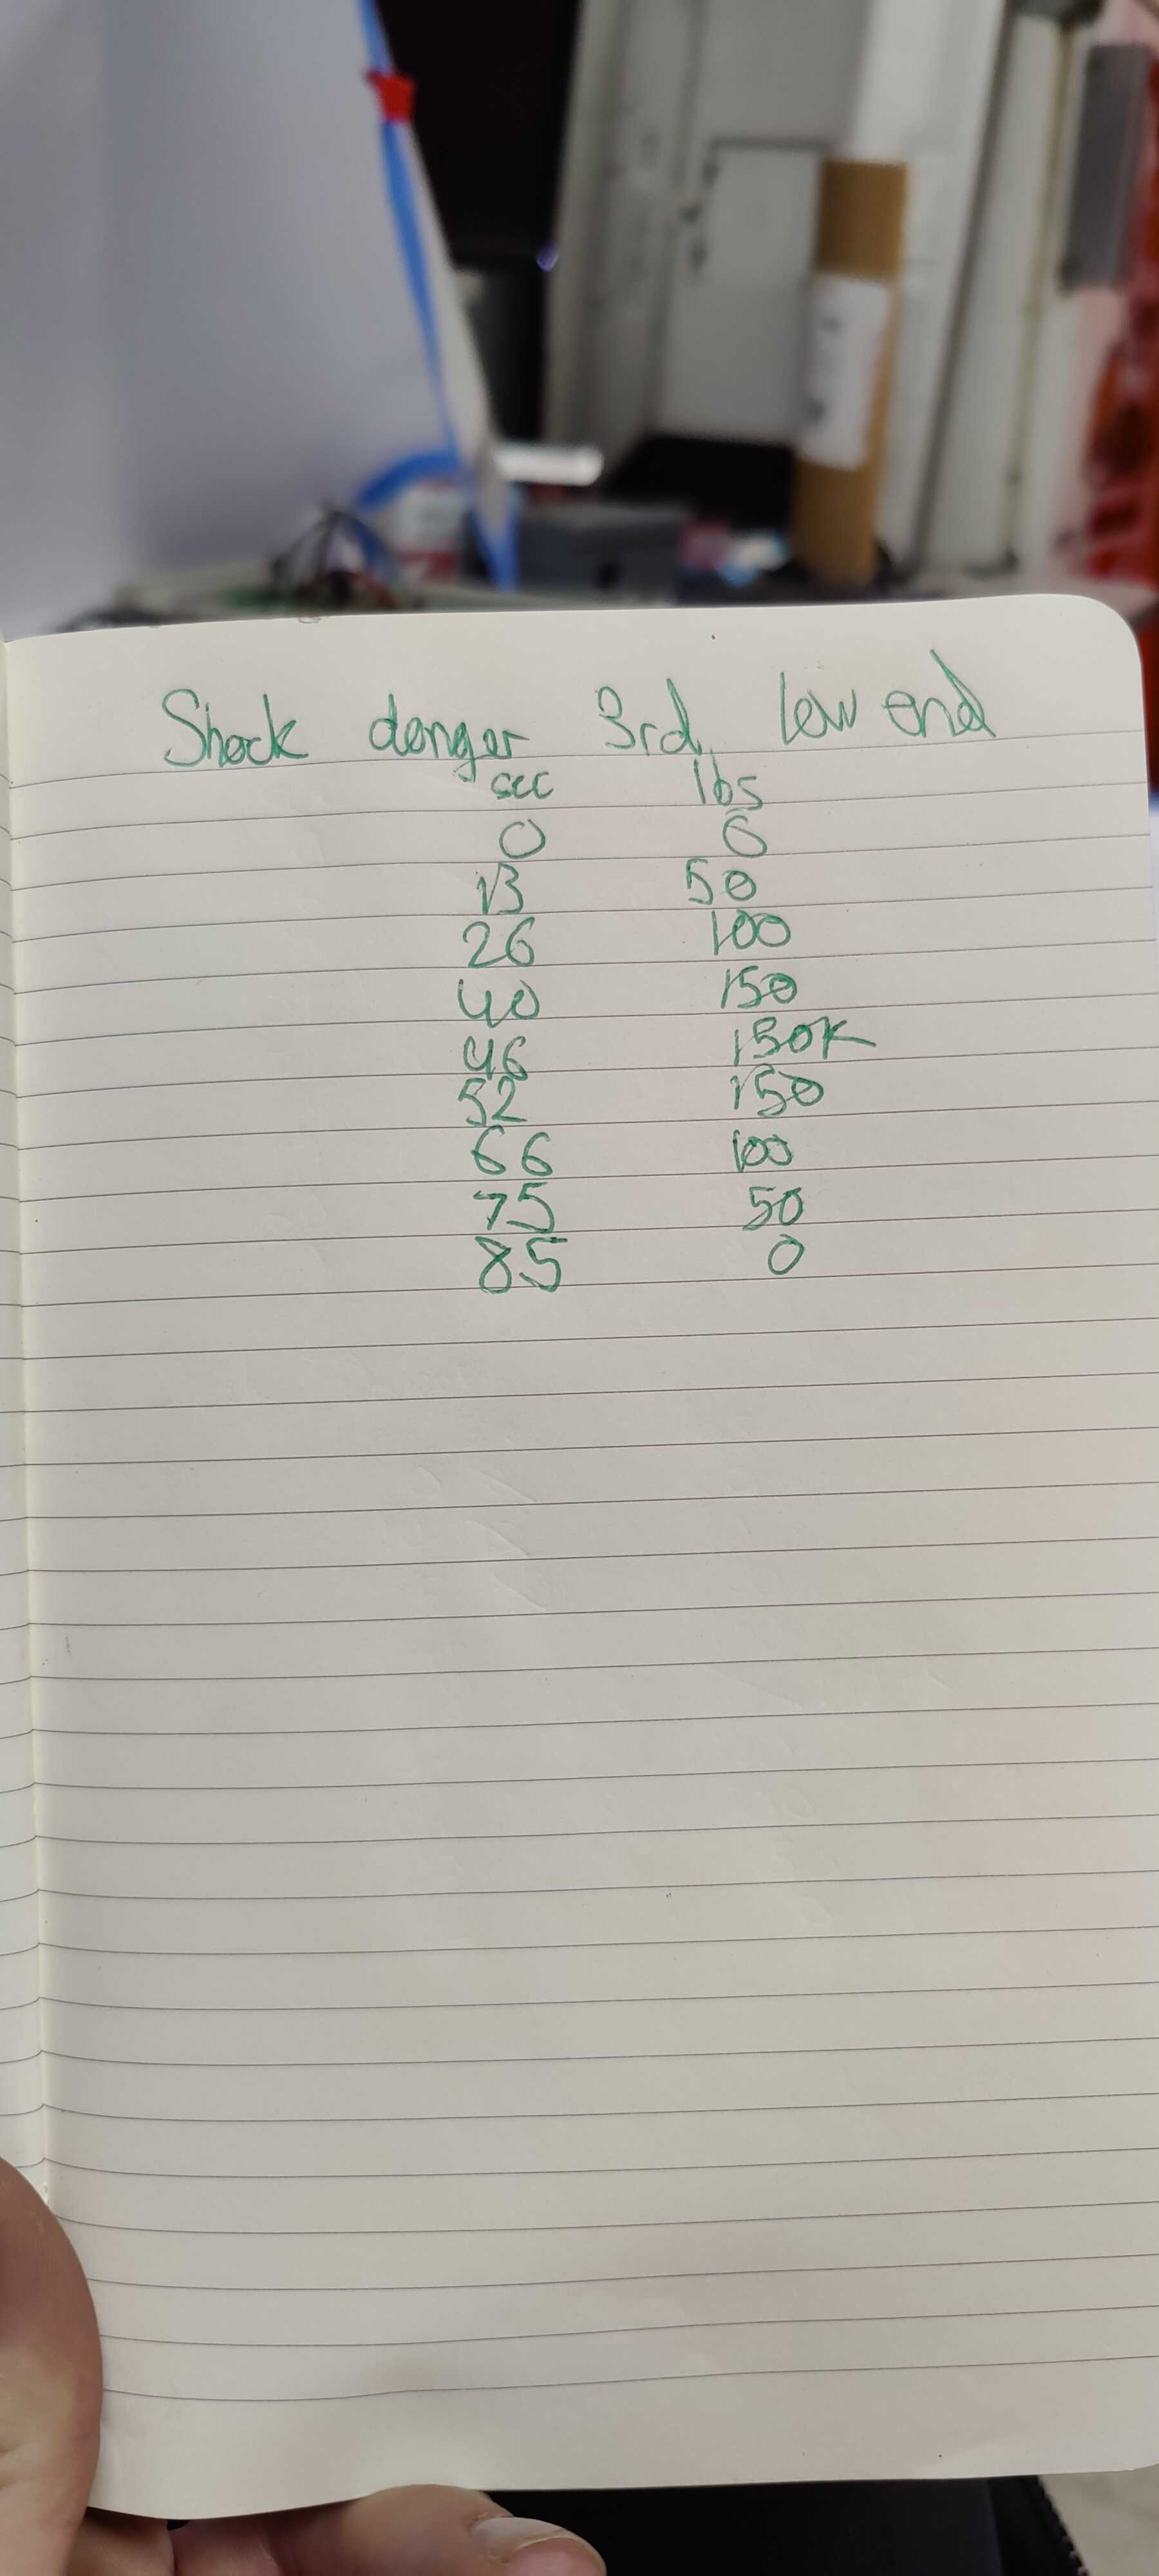 Shock danger 3rd low end
sec lbs
0 0
13 50
26 100
40 150
46 150K
52 150
66 100
75 50
85 0